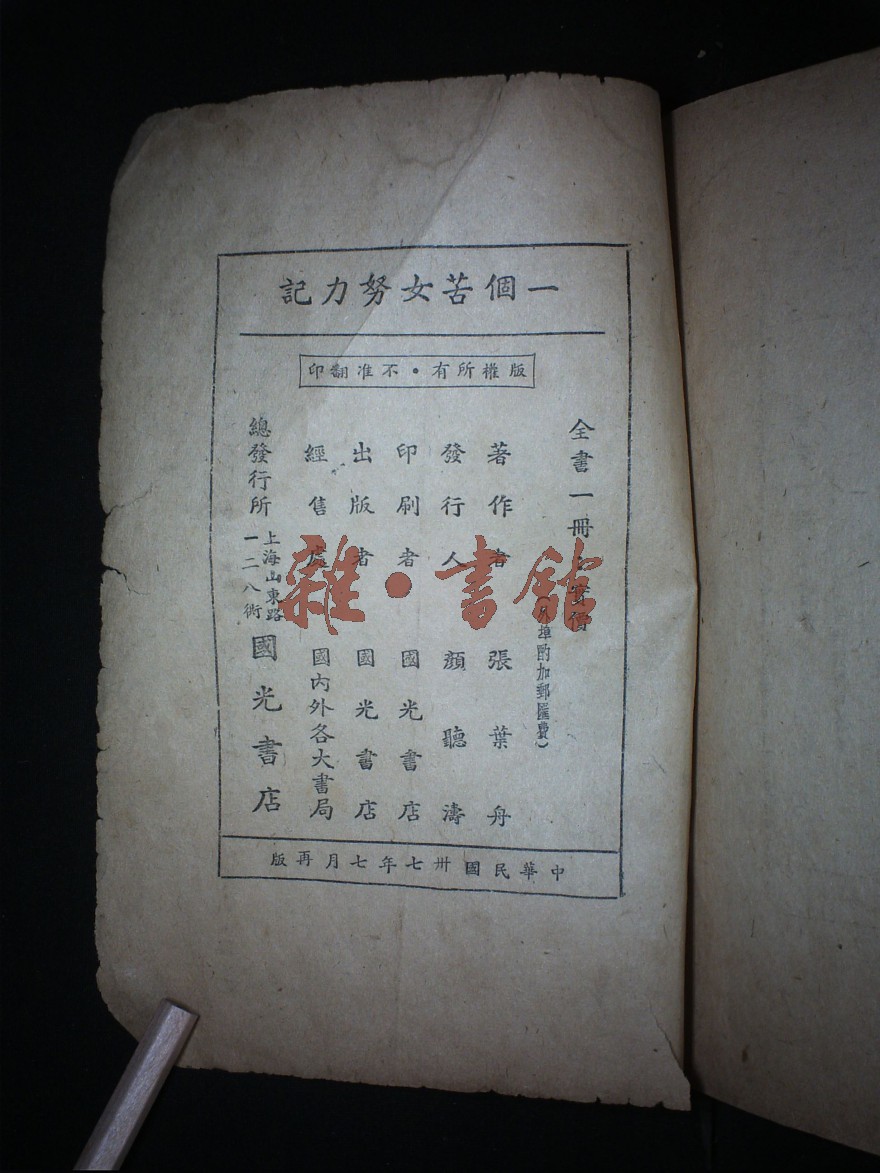 一個苦女努力記
版權所有・不准翻印
全書一冊 實價
外埠酌加郵匯費）
著作者 張葉舟
發行人 顏聽濤
印刷者 國光書店
出版者 國光書店
經售處 國內外各大書局
總發行所 上海山東路
一二八衖
國光書店
中華民國卅七年七月再版
雜・書館